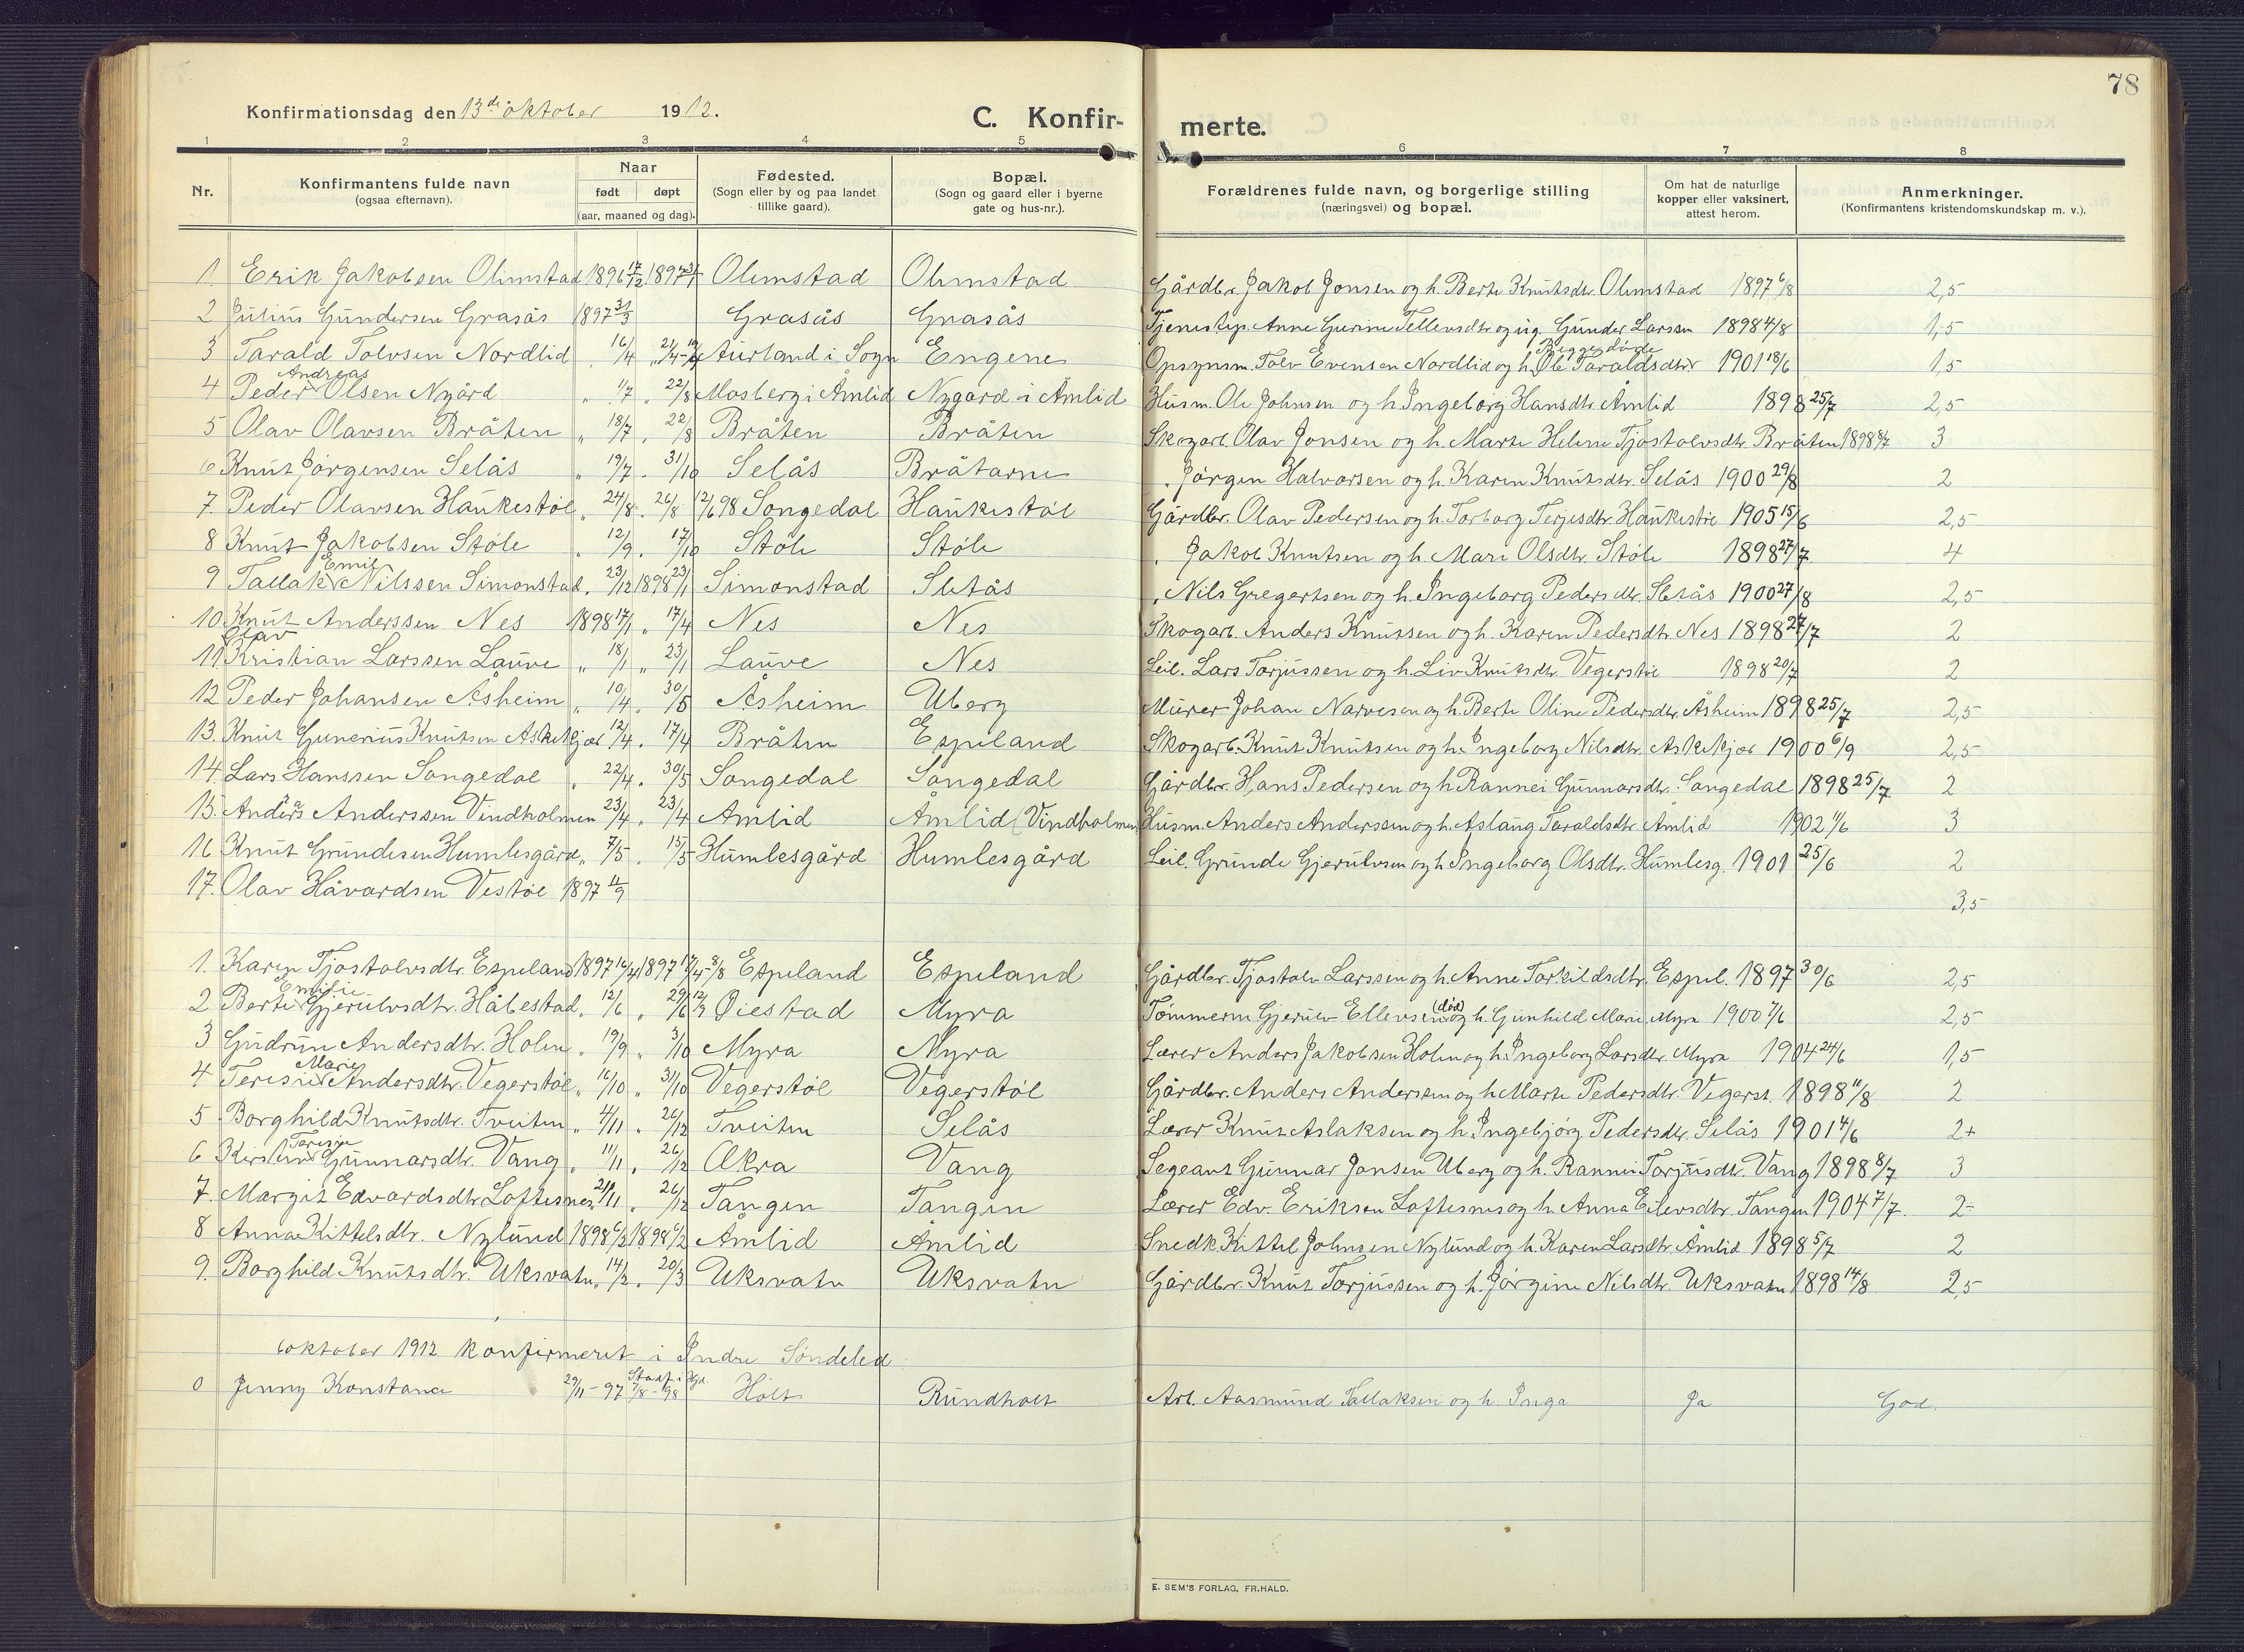 78
Konfirmationsdag den 13de oktober 1912.
C. Konfir-
merte.
1 2 3 4 5
6 7 8
Nr.
Konfirmantens fulde navn
(ogsaa efternavn).
Naar
født døpt
(aar, maaned og dag).
Fødested.
(Sogn eller by og paa landet
tillike gaard).
Bopæl.
(Sogn og gaard eller i byerne
gate og hus-nr.).
Forældrenes fulde navn, og borgerlige stilling
(næringsvei) og bopæl.
Om hat de naturlige
kopper eller vaksinert,
attest herom.
Anmerkninger.
(Konfirmantens kristendomskundskap m. v.).
1. Erik Jakobsen Olimstad 1896 17/12 1897 Olimstad Olimstad Gårdbr. Jakob Jonsen og h. Berte Knutsdtr. Olimstad 1897 6/8 2,5
2 Julius Gundersen Grasås 1897 31/3 Grasås Grasås Tjenestep. Anne Gurine Tellevsdtr og ug. Gunder Larsen 1898 4/8 1,5
3 Tarald Tolvsen Nordlid 16/4 Aurland i Sogn Engene Opsynsm. Tolv Evensen Nordlid og h. Taraldsdtr 1901 18/6 1,5
Begge døde
4 Peder Andreas Olsen Nygård " 1/7 " 22/8 Mosberg i Åmlid Nygård i Åmlid Husm. Ole Johnsen og h. Ingeborg Hansdtr. Åmlid 1898 25/7 2,5
5 Olav Olavsen Bråten " 18/7 " 22/8 Bråten Bråten Skogarb. Olav Jonsen og h. Marte Helene Tjostolvsdtr. Bråten 1898 3
6 Knut Jørgensen Selås " 19/7 " 31/10 Selås Bråtarne " Jørgen Halvorsen og h. Karen Knutsdtr. Selås 1900 29/8 2
7. Peder Olavsen Haukestøl " 24/8 " 26/8 12/6 98 Songedal Haukestøl Gårdbr. Olav Pedersen og h. Torborg Terjesdtr. Haukestøl 1905 15/6 2,5
8 Knut Jakobsen Støle " 12/9 " 17/10 Støle Støle " Jakob Knutsen og h. Mari Olsdtr. Støle 1898 27/7 4
9 Tallak Emil Nilssen Simonstad " 23/12 1898 23/1 Simonstad Sletås " Nils Gregertsen og h. Ingeborg Pedersdtr. Sletås 1900 27/8 2,5
10. Knut Anderssen Nes 1898 17/1 " 17/4 Nes Nes Skogarb. Anders Knutssen og h. Karen Pedersdtr. Nes 1898 27/7 2
11 Olav Kristian Larssen Lauve " 18/1 " 23/1 Lauve Nes Leil. Lars Torjussen og h. Liv Knutsdtr. Vegerstøl 1898 20/7 2
12 Peder Johansen Åsheim " 10/4 " 30/5 Åsheim Uberg Murer Johan Narvesen og h. Berte Oline Pedersdtr. Åsheim 1898 25/7 2,5
13. Knut Gunerius Knutsen Askekjær 12/4 " 17/4 Bråten Espeland Skogarb. Knut Knutsen og h. Ingeborg Nilsdtr. Askekjær 1900 6/9 2,5
14 Lars Hanssen Songedal " 22/4 " 30/5 Songedal Songedal Gårdbr. Hans Pedersen og h. Rannei Gunnarsdtr. Songedal 1898 25/7 2
15. Anders Anderssen Vindholmen 23/4 " 23/4 Åmlid Åmlid (Vindholmen Husm. Anders Anderssen og h. Aslaug Taraldsdtr. Åmlid 1902 4/6 3
16 Knut Grundesen Humlesgård " 7/5 " 15/5 Humlesgård Humlesgård Leil. Grunde Gjerulvsen og h. Ingeborg Olsdtr. Humlesg. 1901 25/6 2
17. Olav Håvardsen Vestøl 1897 11/9 3,5
1. Karen Tjostolvsdtr. Espeland 1897 16/4 1897 17/4 - 8/8 Espeland Espeland Gårdbr. Tjostolv Larssen og h. Anne Torkildsdtr. Espel. 1897 30/6 2,5
2 Berte Emilie Gjerulvsdtr. Håbestad " 12/6 " 29/6 Øiestad Myra Tømmerm Gjerulv Ellevsen (død) og h. Gunhild Marie, Myra 1900 7/6 2,5
3 Gudrun Andersdtr. Holm " 19/9 " 3/10 Myra Myra Lærer Anders Jakobsen Holm og h. Ingeborg Larsdtr. Myra 1904 24/6 1,5
4 Teresie Marie Andersdtr. Vegerstøl " 16/10 " 31/10 Vegerstøl Vegerstøl Gårdbr. Anders Anderssen og h. Marte Pedersdtr. Vegerst. 1898 11/8 2
5 Borghild Knutsdtr. Tveiten " 4/11 " 26/12 Tveiten Selås Lærer Knut Aslaksen og h. Ingebjørg Pedersdtr. Selås 1901 4/6 2+
6 Kirstine Teresie Gunnarsdtr. Vang " 11/11 " 26/12 Økra Vang Segeant Gunnar Jonsen Uberg og h. Rannei Torjusdtr. Vang 1898 8/7 3
7. Margit Edvardsdtr. Loftesnes 21/11 " 26/12 Tangen Tangen Lærer Edv. Eriksen Loftesnes og h. Anna Eilevsdtr. Tangen 1904 7/7. 2-
8 Anna Kittelsdtr. Nylund 1898 6/2 1898 6/2 Åmlid Åmlid Snedk. Kittel Johnsen Nylund og h. Karen Larsdtr. Åmlid 1898 5/7 2
9. Borghild Knutsdtr. Uksvatn " 14/2 " 20/3 Uksvatn Uksvatn Gårdbr. Knut Torjussen og h. Jørgine Nilsdtr. Uksvatn 1898 14/8 2,5
6 oktober 1912 konfirmeret i Indre Søndeled
0 Jenny Konstance 29/11 - 97 7/8 - 98 Holt Rundholt Arb. Aasmund Tallaksen og h. Inga Ja God.
E. SEM'S FORLAG, FR.HALD.